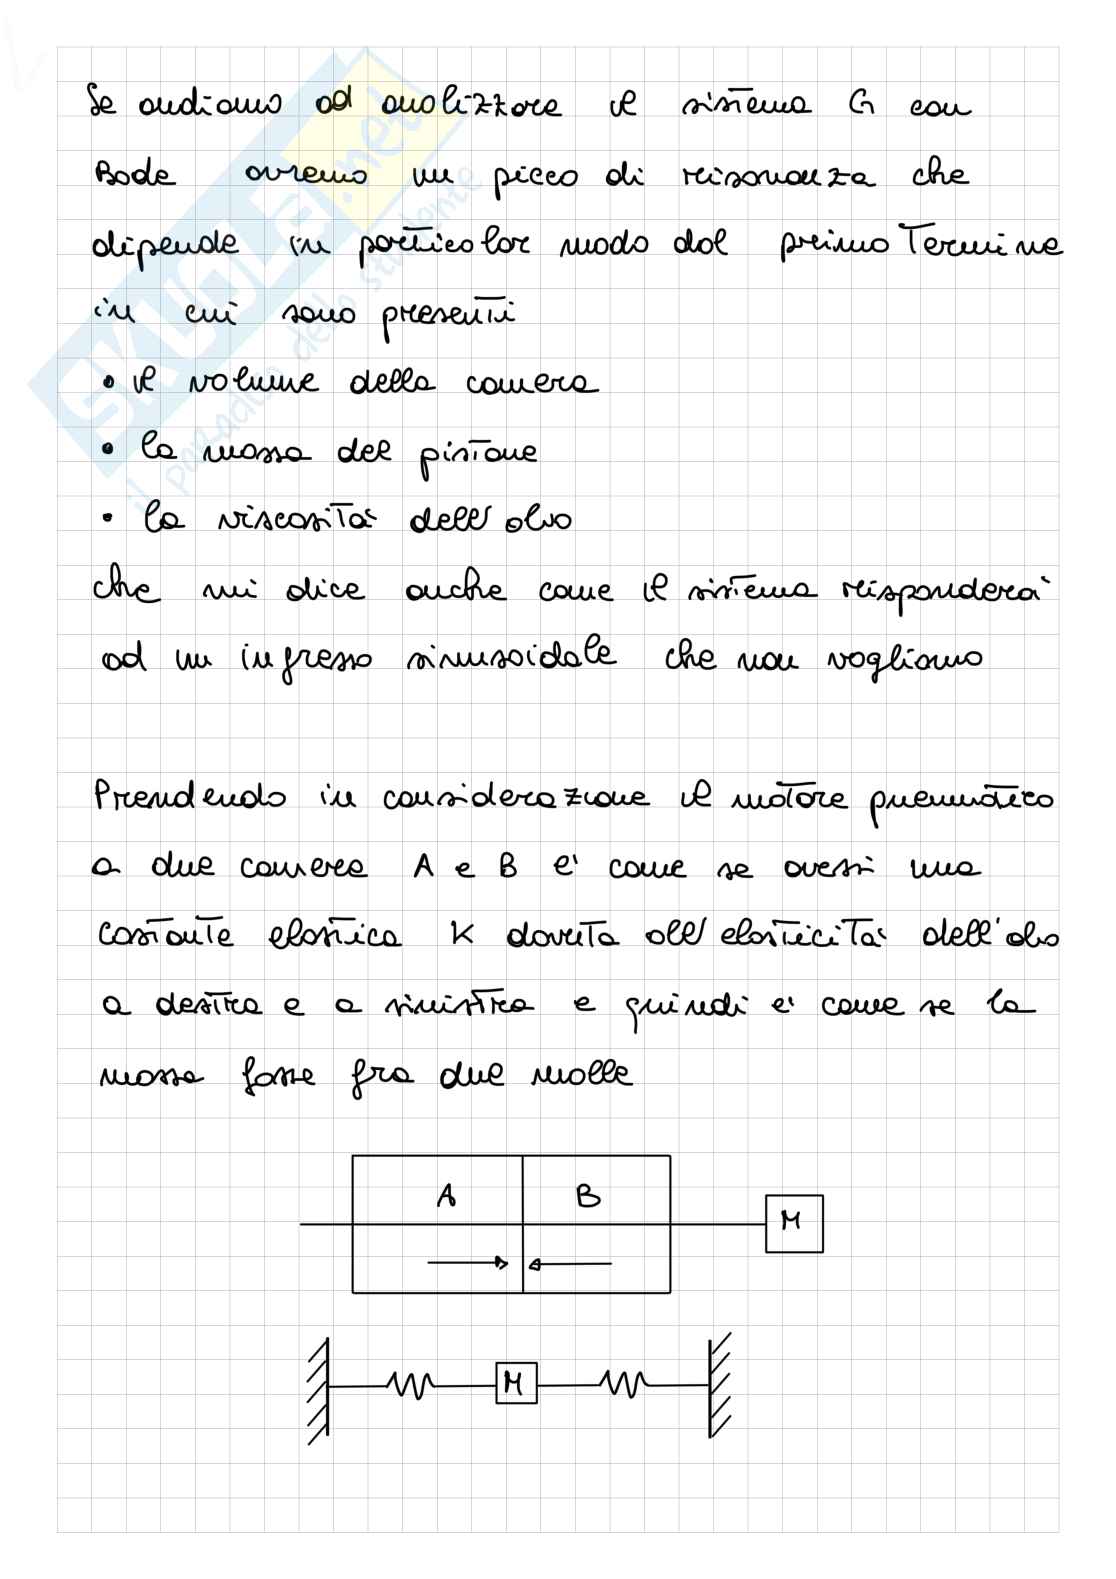 Se andiamo ad analizzare il sistema G con
Bode avremo un picco di risonanza che
dipende in particolar modo dal primo Termine
in cui sono presenti
• il volume della camera
• la massa del pistone
• la viscosità dell'olio
che mi dice anche come il sistema risponderà
ad un ingresso sinusoidale che non vogliamo
Prendendo in considerazione il motore pneumatico
a due camere A e B e' come se avessi una
costante elastica K dovuta all'elasticità dell'olio
a destra e a sinistra e quindi e' come se la
massa fosse fra due molle
A B M
M
SKUOLA.net
il paradiso dello studente